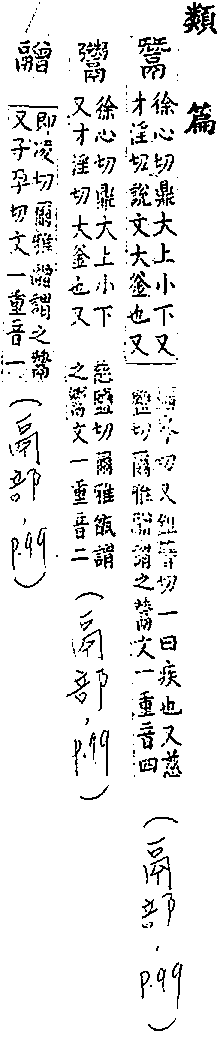 類篇
鬵
徐心切鼎大上小下又
才淫切說文大釜也又
切又 切一曰疾也又慈
鹽切爾雅 謂之鬵文一重音四
(鬲部, p.99)
徐心切鼎大上小下
又才淫切大釜也又
慈鹽切爾雅甑謂
之鬵文一重音二
(鬲部, p.99)
䰝
即凌切爾雅䰝謂之鬵
又子孕切文一重音一
(鬲部, p.99)